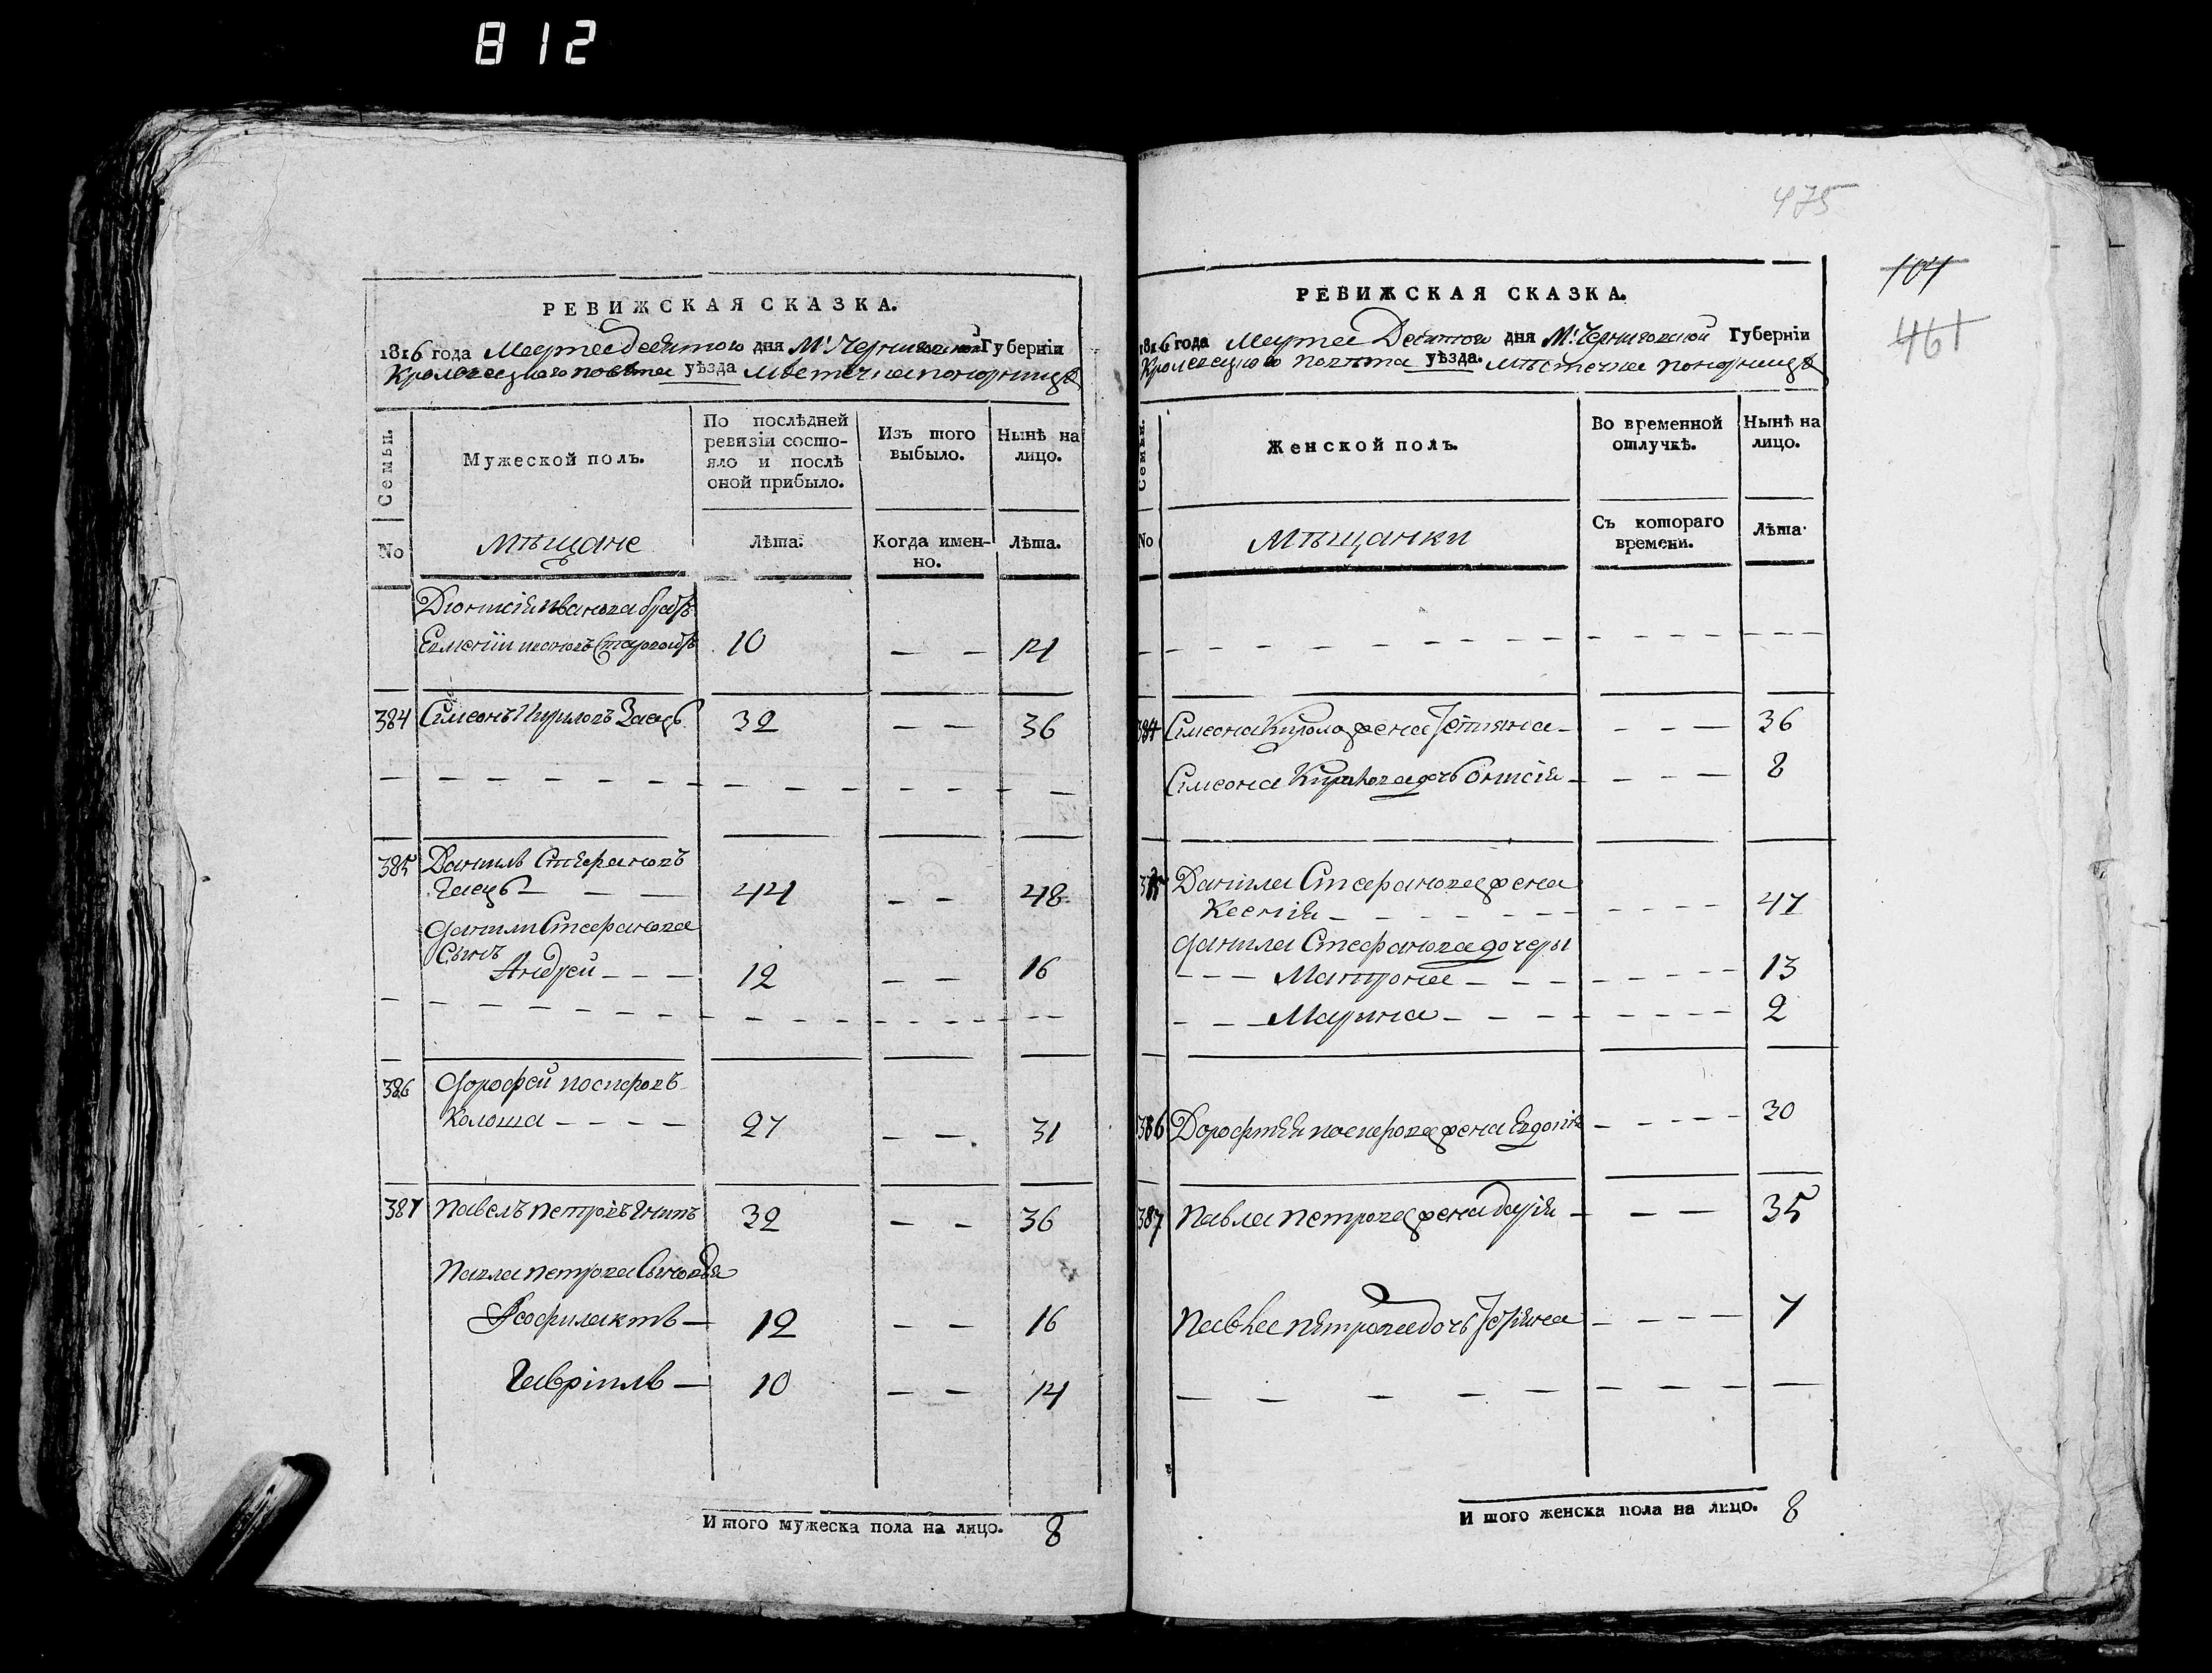 812
РЕВИЖСКАЯ СКАЗКА.
1816 года Марта десятого дня М. Черниговской Губерніи
Кролевецкого повѣта уѣзда Мѣстечка понорницѣ
Семьи.
Мужеской полъ.
По послѣдней ревизіи состояло и послѣ оной прибыло.
Изъ того выбыло.
Нынѣ на лицо.
No
Мѣщане
Лѣта.
Когда именно.
Лѣта.
Дионисія иванова братъ
10 — — 14
384 Симеонъ Кирилов Заецъ 32 — — 36
385 Данилъ Стефановъ
Заецъ — — — 44 — — 48
Данила Стефанова
Сынъ
Андрей — — — 12 — — 16
386 Дорофей иосифовъ
Колоша — — — — 27 — — 31
387 Павелъ петровъ Гнипъ 32 — — 36
Павла петрова Сыновья
Феофилактъ — 12 — — 16
Гавріилъ — 10 — — 14
И того мужеска пола на лицо. 8
475
104
461
РЕВИЖСКАЯ СКАЗКА.
1816 года Марта Десятого дня М. Черниговской Губерніи
Кролевецкого повѣта уѣзда. мѣстечка понорницѣ
Семьи.
Женской полъ.
Во временной отлучкѣ.
Нынѣ на лицо.
No
Мѣщанки
Съ котораго времени.
Лѣта
384 Симеона Кирилова жена — — — — 36
Симеона Кирилова дочь — — — — 8
385 Данила Стефанова жена
Ксенія — — — — 47
Данила Стефанова дочеры
— — — Матрона — — — 13
— — — Марина — — — 2
386 Дорофея иосифова жена Евдокія — — — — 30
387 Павла петрова жена дарія — — — 35
Павла петрова дочь — — — — 7
И того женска пола на лицо. 8